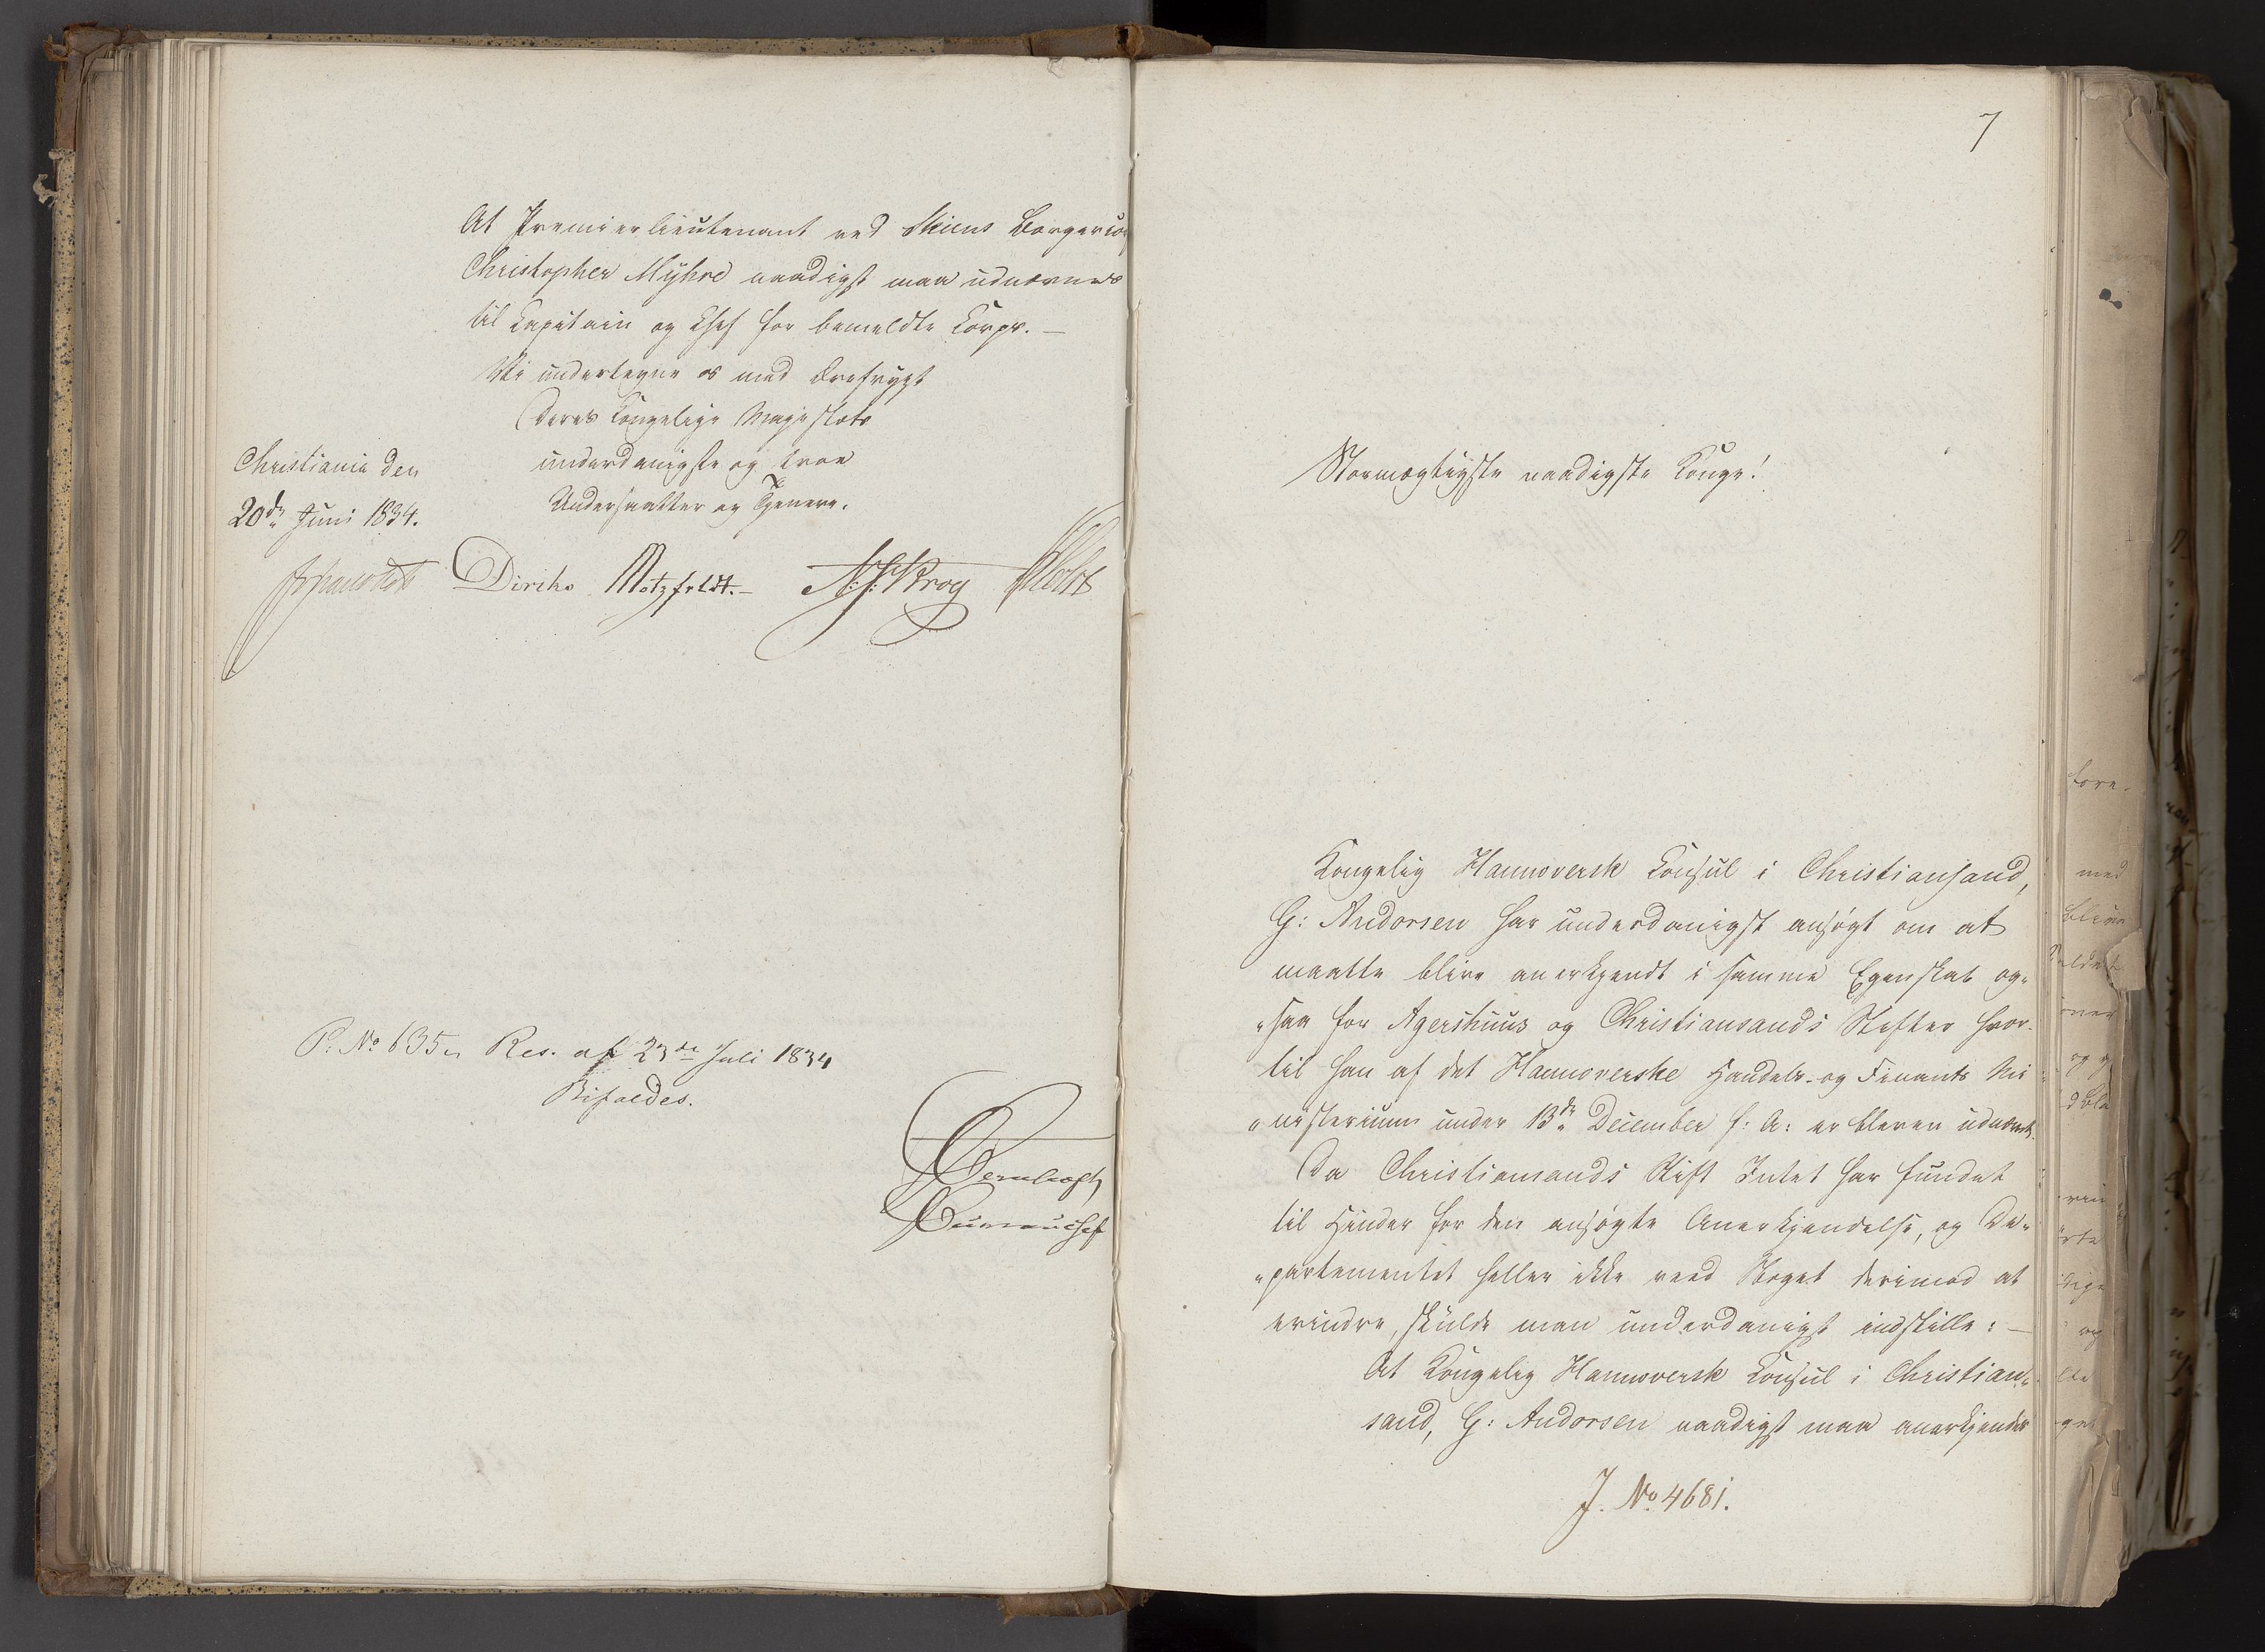 At Premierlieutenant ved Skiens Borgercor
Christopher Myhre naadigst maa udnævnes
til Capitain og Chef for bemeldte Corps. —
Vi undertegne os med Ærefrygt
Deres Kongelige Majestæts
underdanigste og troe
Undersaatter og Tjenere.
Christiania den
20de Juni 1834.
Diriks Motzfeldt. — N. J. Krog Holst
P. No 635, Res. af 23de Juli 1834
Bifaldes.
7
Stormægtigste naadigste Konge!
Kongelig Hannoversk Consul i Christiansand,
G: Andorsen har underdanigst ansøgt om at
maatte blive anerkjendt i samme Egenskab og„
„saa for Agershuus og Christiansands Stifter hvor-
til han af det Hannoverske Handels- og Finants Mi
„nisterium under 13de December f: A: er bleven udnævnt.
Da Christiansands Stift Intet har fundet
til Hinder for den ansøgte Anerkjendelse, og De„
„partementet heller ikke veed Noget derimod at
erindre, skulde man underdanigst indstille: —
At Kongelig Hannoversk Consul i Christian„
sand, G: Andorsen naadigst maa anerkjendes
J. No 4681.